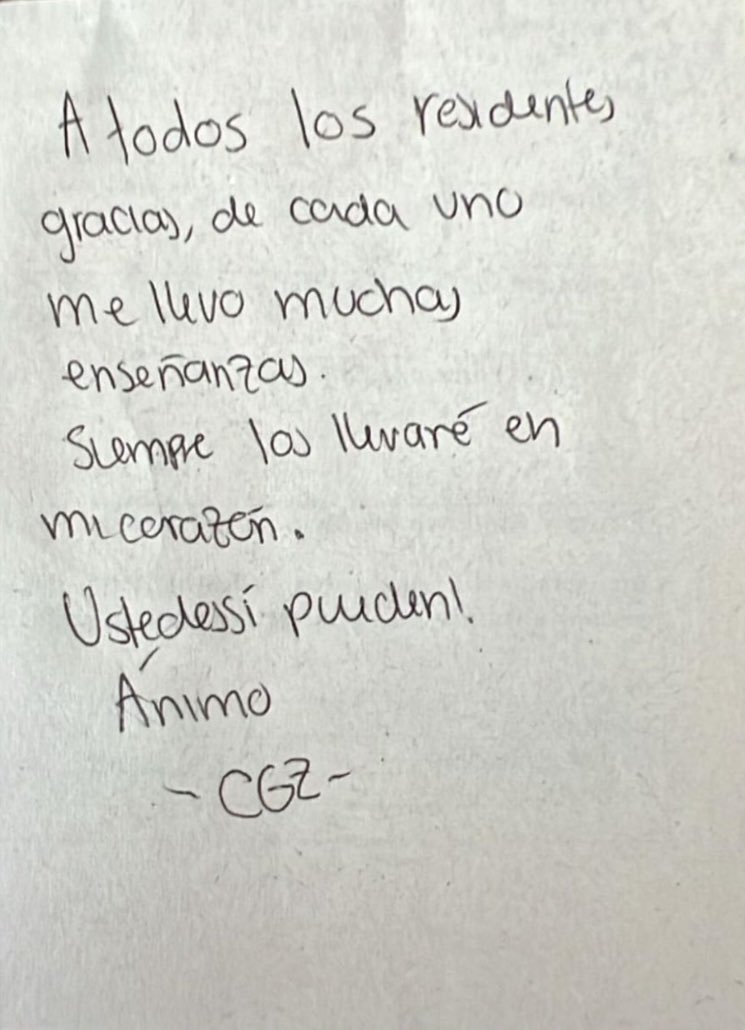 A todos los residentes
gracias, de cada uno
me llevo muchas
enseñanzas.
Siempre los llevaré en
mi corazón.
Ustedes sí pueden!
Ánimo
- CGZ -